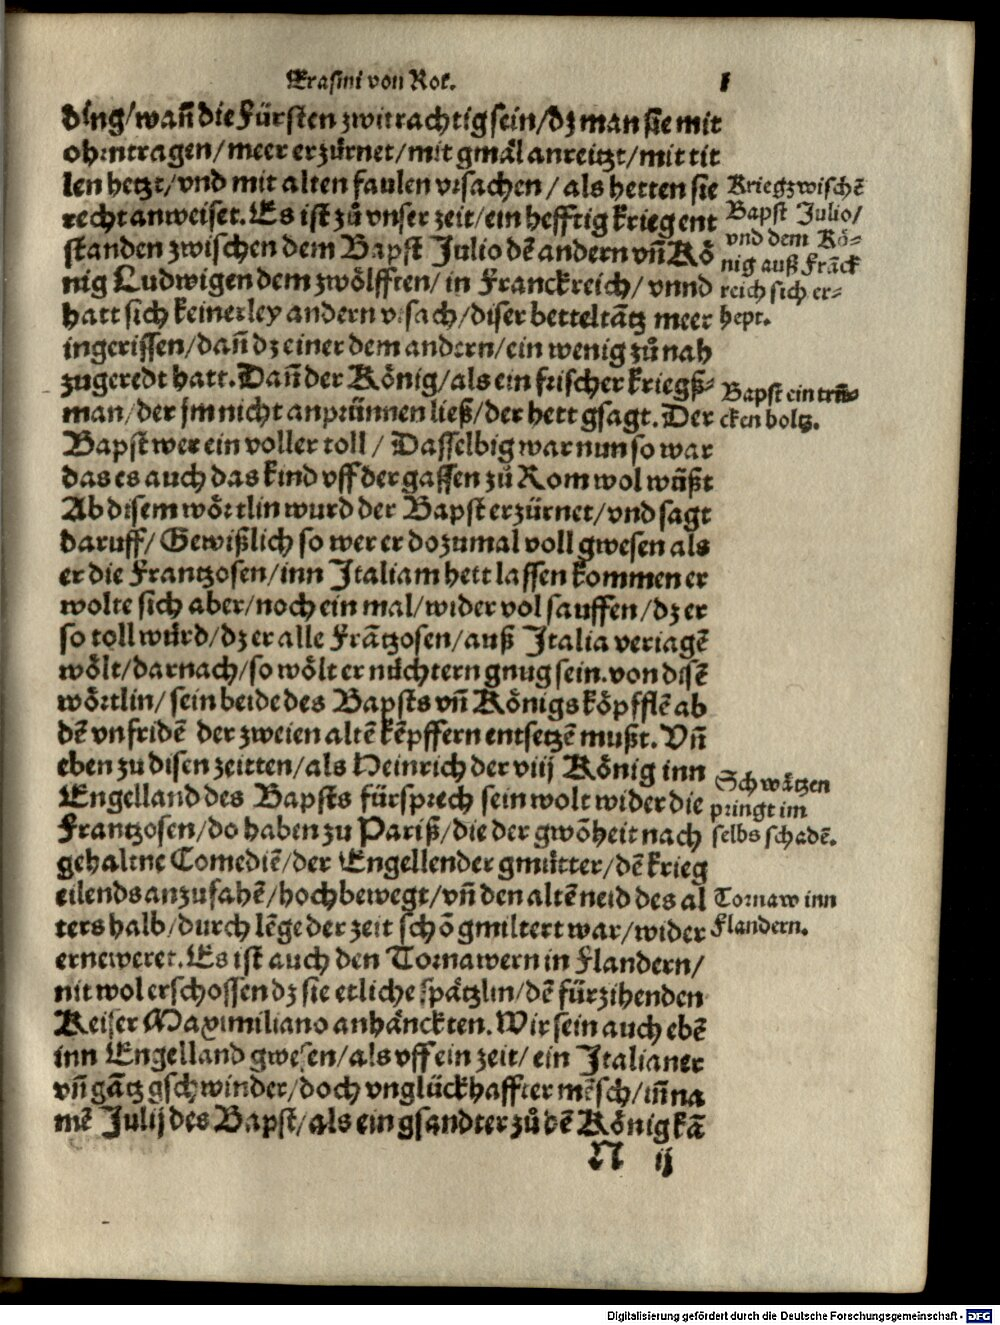 Erasmi von Rot.
l
ding/wañ die Fürsten zwitrachtig sein/dz man sie mit
ohrntragen/meer erzürnet/mit gmäl anreitzt/mit tit
len hetzt/vnd mit alten faulen vrsachen/als hetten sie
recht anweiset. Es ist zů vnser zeit/ein hefftig krieg ent
standen zwischen dem Bapst Julio dē andern vñ Kö
nig Ludwigen dem zwölfften/in Franckreich/vnnd
hatt sich keinerley andern vrsach/diser betteltātz meer
ingerissen/dañ dz einer dem andern/ein wenig zů nah
zugeredt hatt. Dañ der König/als ein frischer kriegß⸗
man/der jm nicht anprünnen ließ/der hett gsagt. Der
Bapst wer ein voller toll/Dasselbig war nun so war
das es auch das kind vff der gassen zů Rom wol wüßt
Ab disem wörtlin wurd der Bapst erzürnet/vnd sagt
daruff/Gewißlich so wer er dozumal voll gwesen als
er die Frantzosen/inn Italiam hett lassen kommen er
wolte sich aber/noch ein mal/wider vol sauffen/dz er
so toll würd/dz er alle Frātzosen/auß Italia veriagē
wölt/darnach/so wölt er nüchtern gnug sein. von disē
wörtlin/sein beide des Bapsts vñ Königs köpfflē ab
dē vnfridē der zweien altē kēpffern entsetzē mußt. Vñ
eben zu disen zeitten/als Heinrich der viij König inn
Engelland des Bapsts fürsprech sein wolt wider die
Frantzosen/do haben zu Pariß/die der gwōheit nach
gehaltne Comediē/der Engellender gmütter/dē krieg
eilends anzufahē/hoch bewegt/vñ den altē neid des al
ters halb/durch lēge der zeit schō gmiltert war/wider
erneweret. Es ist auch den Tornawern in Flandern/
nit wol erschossen dz sie etliche spätzlin/dē fürzihenden
Keiser Maximiliano anhänckten. Wir sein auch ebē
inn Engelland gwesen/als vff ein zeit/ein Italianer
vñ gātz gschwinder/doch vnglückhaffter mēsch/iñ na
mē Julij des Bapst/als ein gsandter zů dē König kā
N ij
Krieg zwischē
Bapst Julio/
vnd dem Kö⸗
nig auß Frāck
reich sich er⸗
hept.
Bapst ein trū⸗
cken boltz.
Schwätzen
pringt im
selbs schadē.
Tornaw inn
Flandern.
Digitalisierung gefördert durch die Deutsche Forschungsgemeinschaft - DFG